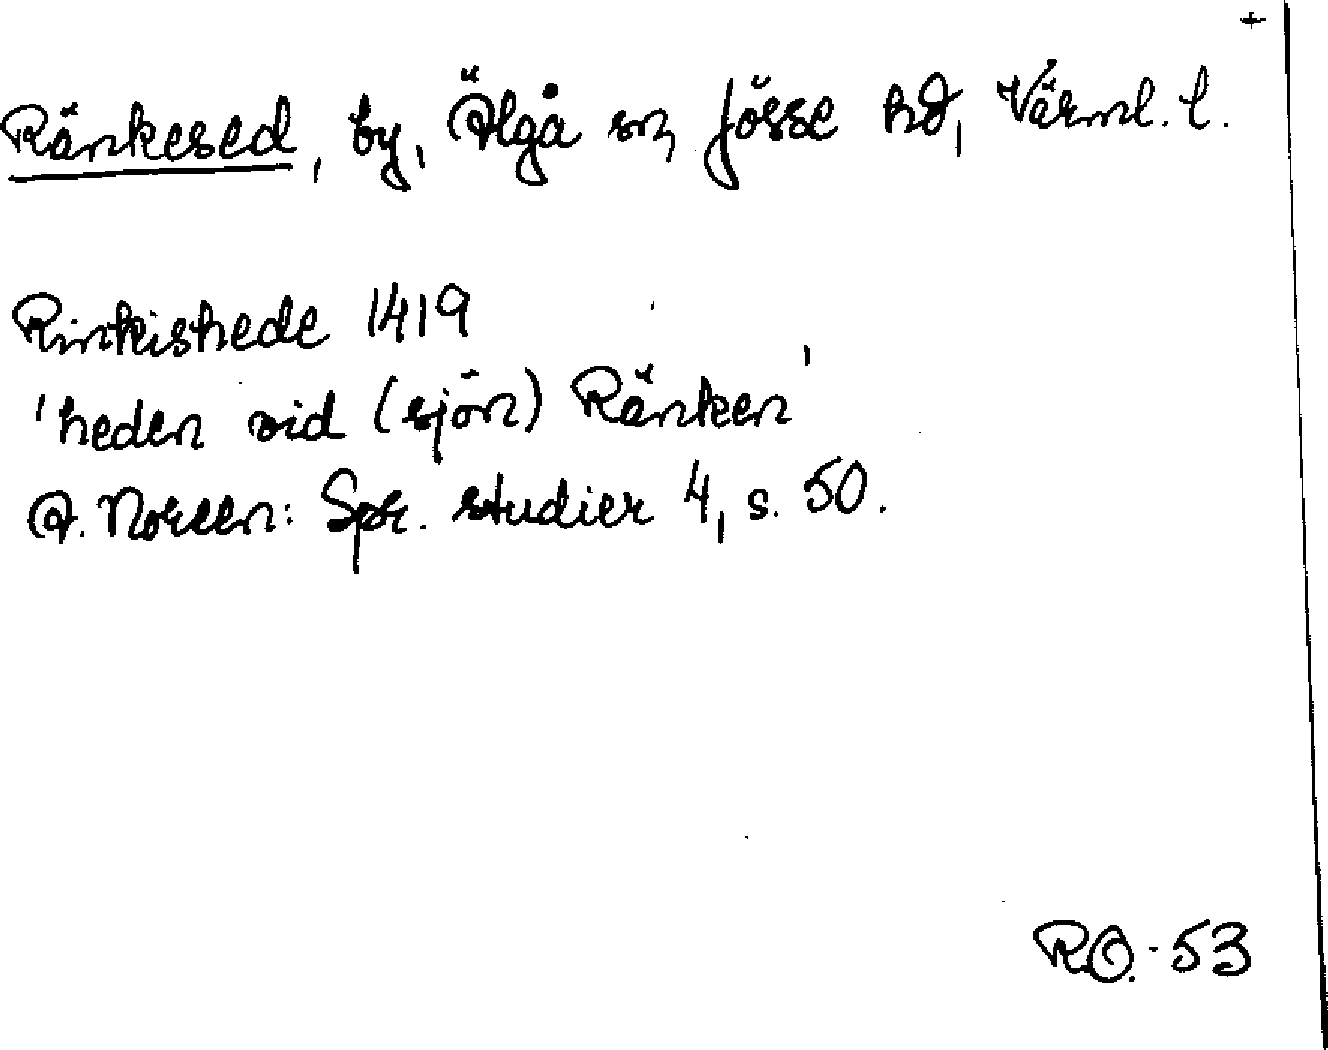 +
Ränkesed, by, Älgå sn, Jösse hd, Värml. l.
Rinkishede 1419
'heden vid (sjön) Ränken'
A. Noreen: Spr. studier 4, s. 50.
R.O. -53